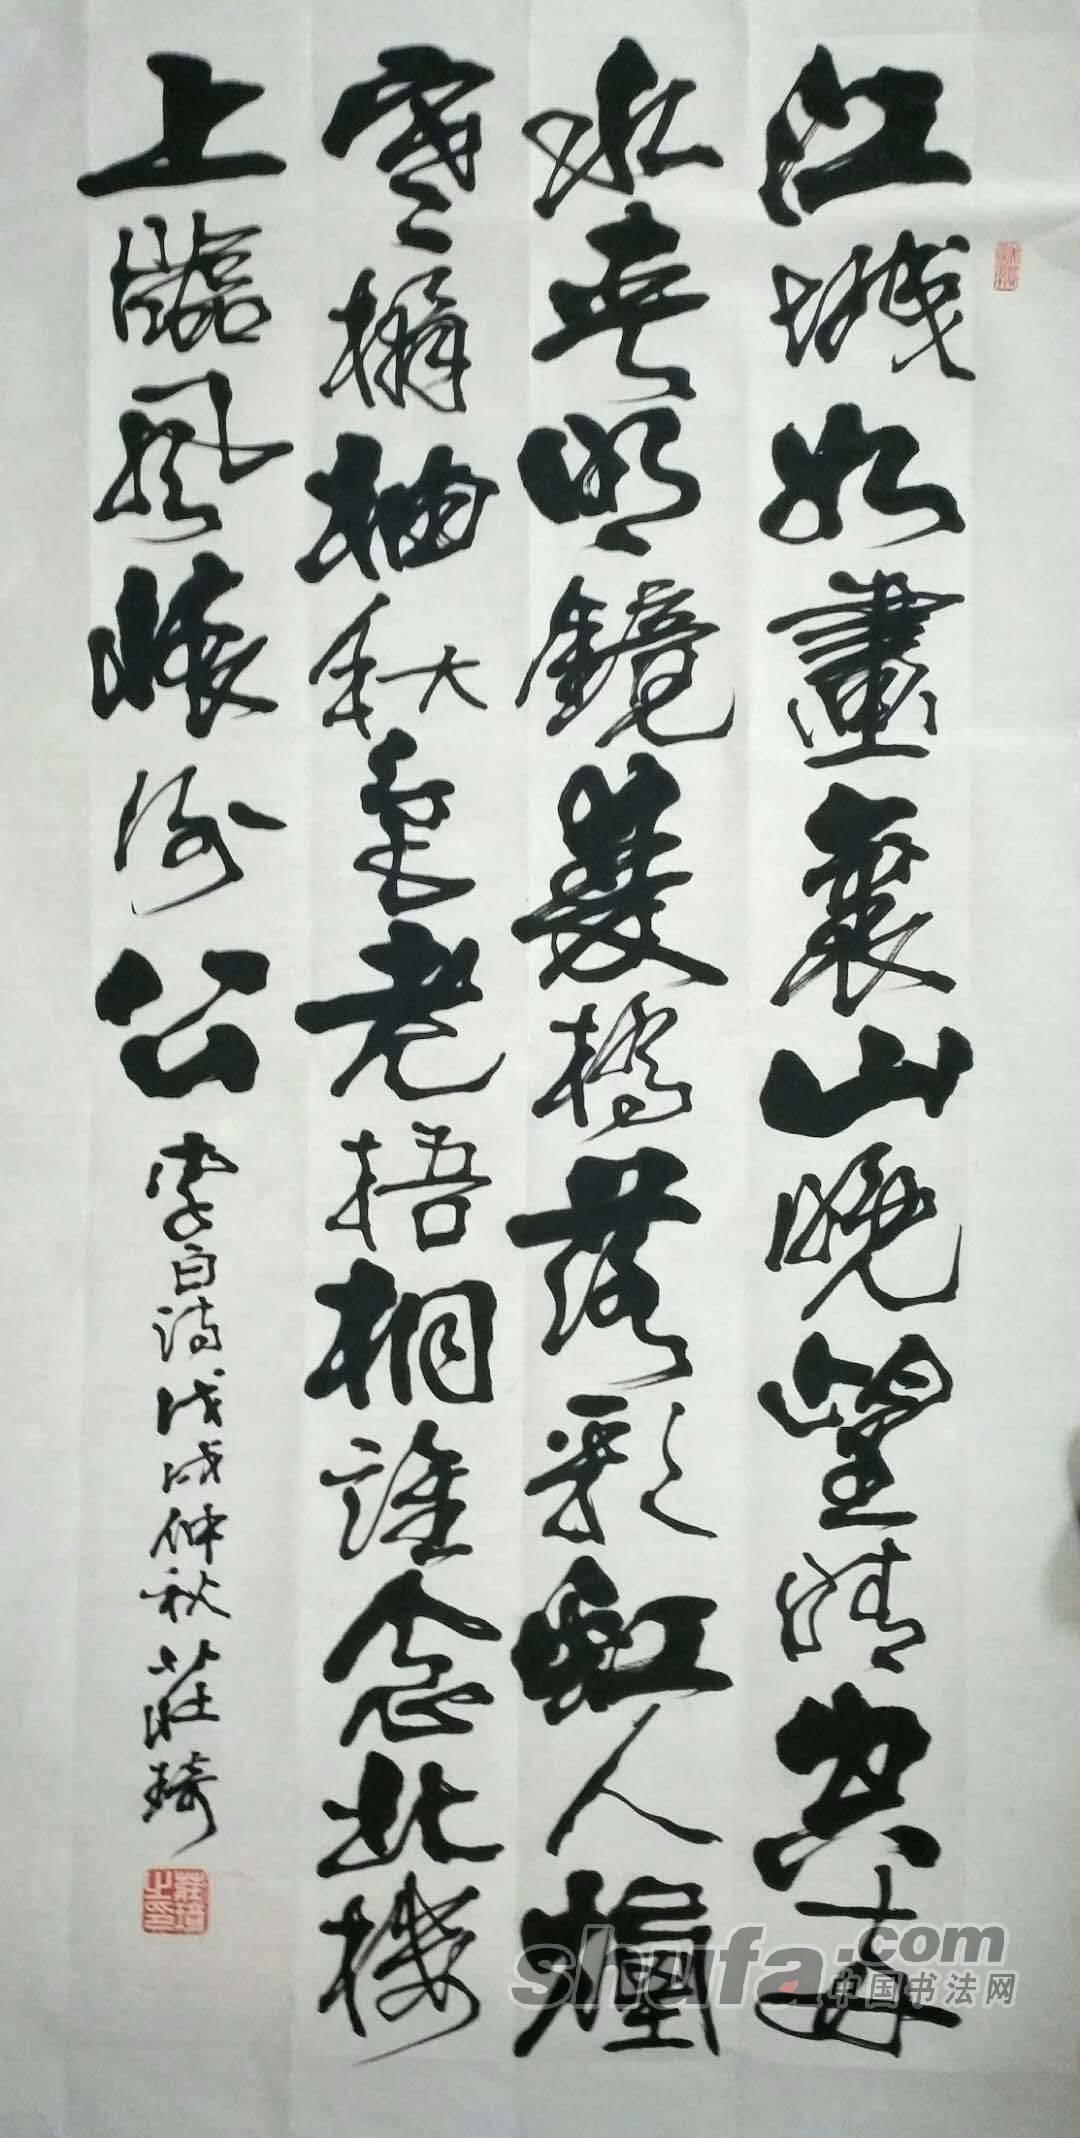 江城如畫裏山晚望晴空兩
水夾明鏡雙橋落彩虹人煙
寒橘柚秋色老梧桐誰念北樓
上臨風懷謝公
李白詩戊戌仲秋莊琦
莊琦之印
shufa.com
中国书法网